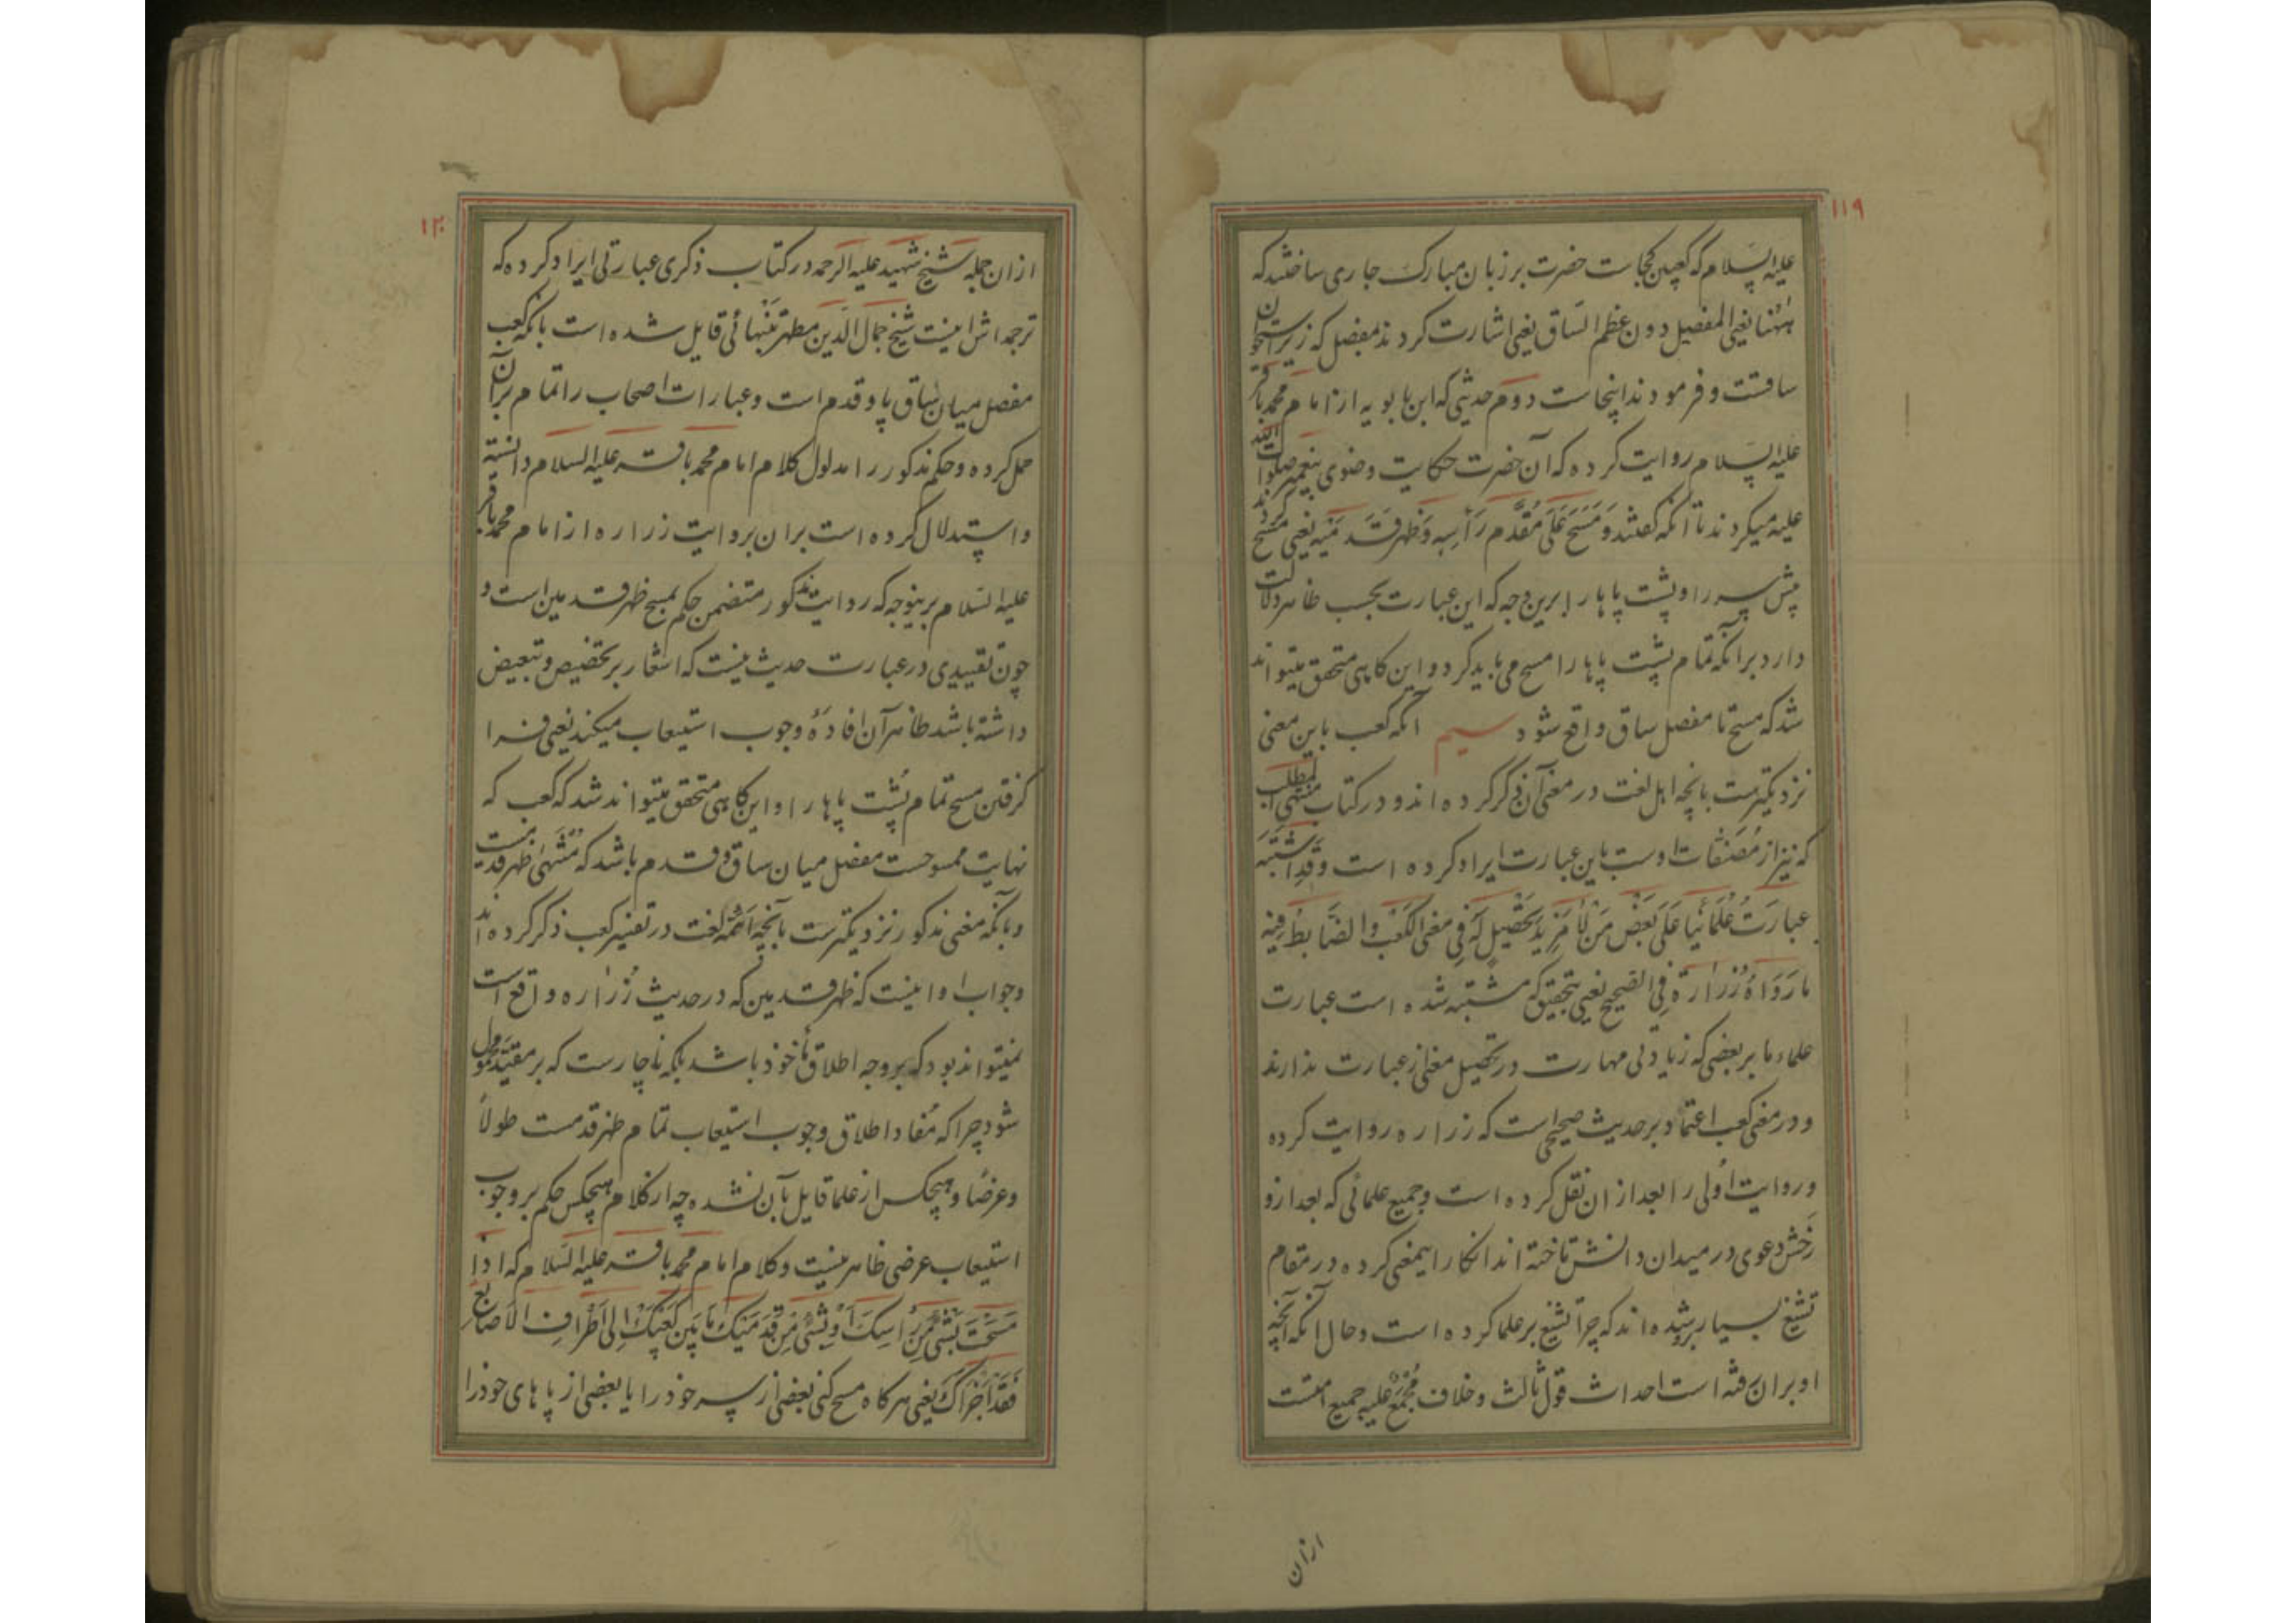 ۱۱۹
علیه السلام که کعبین کجاست حضرت بر زبان مبارک جاری ساختند که
ههنا یعنی المفصل دون عظم الساق یعنی اشارت کردند بمفصل که زیر استخوان
ساقست و فرمودند اینجاست دوم حدیثی که ابن بابویه از امام محمد باقر
علیه السلام روایت کرده که آن حضرت حکایت وضوی پیغمبر صلوات الله
علیه میکردند تا آنکه گفتند وَمَسَحَ عَلَی مُقَدَّمِ رَأسِهِ وَظَهرِ قَدَمَیهِ یعنی مسح کردند
پیش سر را و پشت پاها را برین وجه که این عبارت بحسب ظاهر دلالت
دارد بر آنکه تمام پشت پاها را مسح می باید کرد و این گاهی متحقق میتواند
شد که مسح تا مفصل ساق واقع شود سیم آنکه کعب باین معنی
نزدیکترست بآنچه اهل لغت در معنی آن ذکر کرده اند و در کتاب منتهی المطلب
که نیز از مُصَنَّفات اوست باین عبارت ایراد کرده است وَقَدِ اشتَبَهَ
عِبارَتُ عُلَمَائِنَا عَلَی بَعضِ مَن لَا مَزِیدَ تَحصِیلٍ لَهُ فِی مَعنَی الکَعبِ وَالضَّابِطُ فِیهِ
مَا رَوَاهُ زُرَارَةُ فِی الصَّحِیحِ یعنی بتحقیق که مشتبه شده است عبارت
علماء ما بر بعضی که زیادتی مهارت در تحصیل معنی از عبارت ندارند
و در معنی کعب اعتماد بر حدیث صحیحی است که زراره روایت کرده
و روایت اُولی را بعد از ان نقل کرده است و جمیع علمائی که بعد ازو
رَخش دعوی در میدان دانش تاخته اند انکار اینمعنی کرده در مقام
تشنیع بسیار بروشده اند که چرا تشنیع بر علما کرده است و حال آنکه آنچه
او بران رفته است احداث قول ثالث و خلاف مُجمَعٌ علیه جمیع امتست
ازان
۱۲۰
ازان جمله شیخ شهید علیه الرحمه در کتاب ذکری عبارتی ایراد کرده که
ترجمه اش اینست شیخ جمال الدین مطهر بتنهائی قایل شده است بآنکه کعب
مفصل میان ساق پا و قدم است و عبارات اصحاب را تمام بر آن
حمل کرده و حکم مذکور را مدلول کلام امام محمد باقر علیه السلام دانسته
و استدلال کرده است بران بروایت زراره از امام محمد باقر
علیه السلام برینوجه که روایت مذکور متضمن حکم بمسح ظهر قدمین است و
چون تقییدی در عبارت حدیث نیست که اشعار بر تخصیص و تبعیض
داشته باشد ظاهر آن افادهٔ وجوب استیعاب میکند یعنی فرا
گرفتن مسح تمام پشت پاها را و این گاهی متحقق میتواند شد که کعب که
نهایت ممسوحست مفصل میان ساق و قدم باشد که مُنتَهیٰ ظهر قدمست
و بآنکه معنی مذکور نزدیکترست بآنچه ائمّه لغت در تفسیر کعب ذکر کرده اند
و جواب او اینست که ظهر قدمین که در حدیث زُرَاره واقع است
نمیتواند بود که بر وجه اطلاق مأخوذ باشد بلکه ناچارست که بر مقیّد محمول
شود چرا که مُفاد اطلاق وجوب استیعاب تمام ظهر قدمست طولاً
و عرضاً و هیچکس از علما قایل بآن نشده چه از کلام هیچکس حکم بر وجوب
استیعاب عرضی ظاهر نیست و کلام امام محمد باقر علیه السلام که اِذَا
مَسَحتَ بِشَئٍ مِن رَاسِکَ اَو بِشَئٍ مِن قَدَمَیکَ مَا بَینَ کَعبَیکَ اِلَی اَطرَافِ الاَصَابِعِ
فَقَد اَجزَاکَ یعنی هر گاه مسح کنی بعضی از سر خود را یا بعضی از پاهای خود را